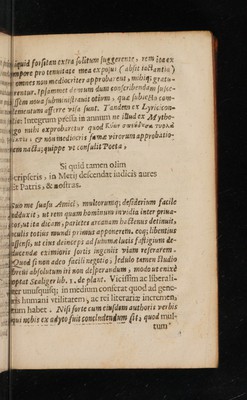 liquid forsitan extra solitum suggerente, rem ita ex
tempore pro tenuitate mea exposui (absit iactantia)
omnes non mediocriter approbarent, mihiq; gratu-
rentur. Ipsemmet demum dum conscribendam susce-
issem noua subministrauit otium, quæ subiecta com-
plementum afferre visa sunt. Tandem ex Lyrici con-
silio: Integrum pressa in annum ne illud ex Mythe-
go mihi exprobraretur quod
antis; & non mediocri iam virorum approbatio-
nem nacta; quippe vt consulit Poeta,
Si quid tamen olim
scripseris, in Metij descendat iudicis aures
Et Patris, & nostras.
Duo me suasu Amici, multorumq; desiderium facile
adduxit, vt rem quam hominum inuidia inter prima-
or, vt ita dicam, parietes arcanam hactenus detinuit,
oculis totius mundi primus apponerem. eoq; libentius
offensus, vt eius deinceps ad summa lucis fastigium de-
ducendæ eximioris fortis ingenijs viam reserarem.
Quod si non adeo facili negotio; sedulo tamen studio
ueritis absolutum iri non desperandum, modo vt enixe
optat Scaliger lib. 1. de plant. Vicissim ac liberali-
ter unusquisq; in medium conferat quod ad gene-
ris humani vtilitatem, ac rei literariæ incremen-
tum habet. Nisi forte cum eiusdem authoris verbis
qui nobis ex adyto fuit concludendum sit, quod mul-
tum